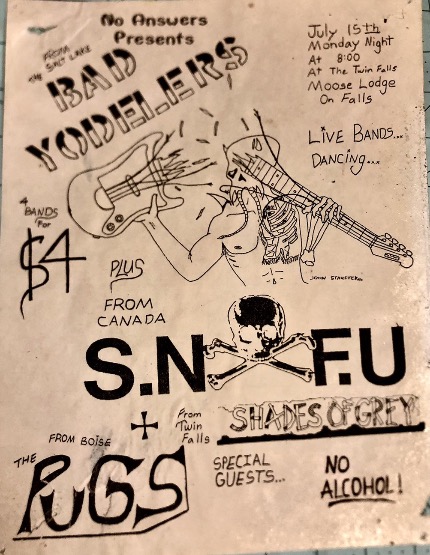 No Answers
Presents
FROM
THE SALT LAKE
BAD
YODELERS
July 15th
Monday Night
At 8:00
At The Twin Falls
Moose Lodge
On Falls
LIVE BANDS...
DANCING...
4
BANDS
for
$4
PLUS
FROM
CANADA
S.N F.U
FROM BOISE
THE
PUGS
From
Twin
Falls
SHADES OF GREY
SPECIAL
GUESTS...
NO
ALCOHOL!